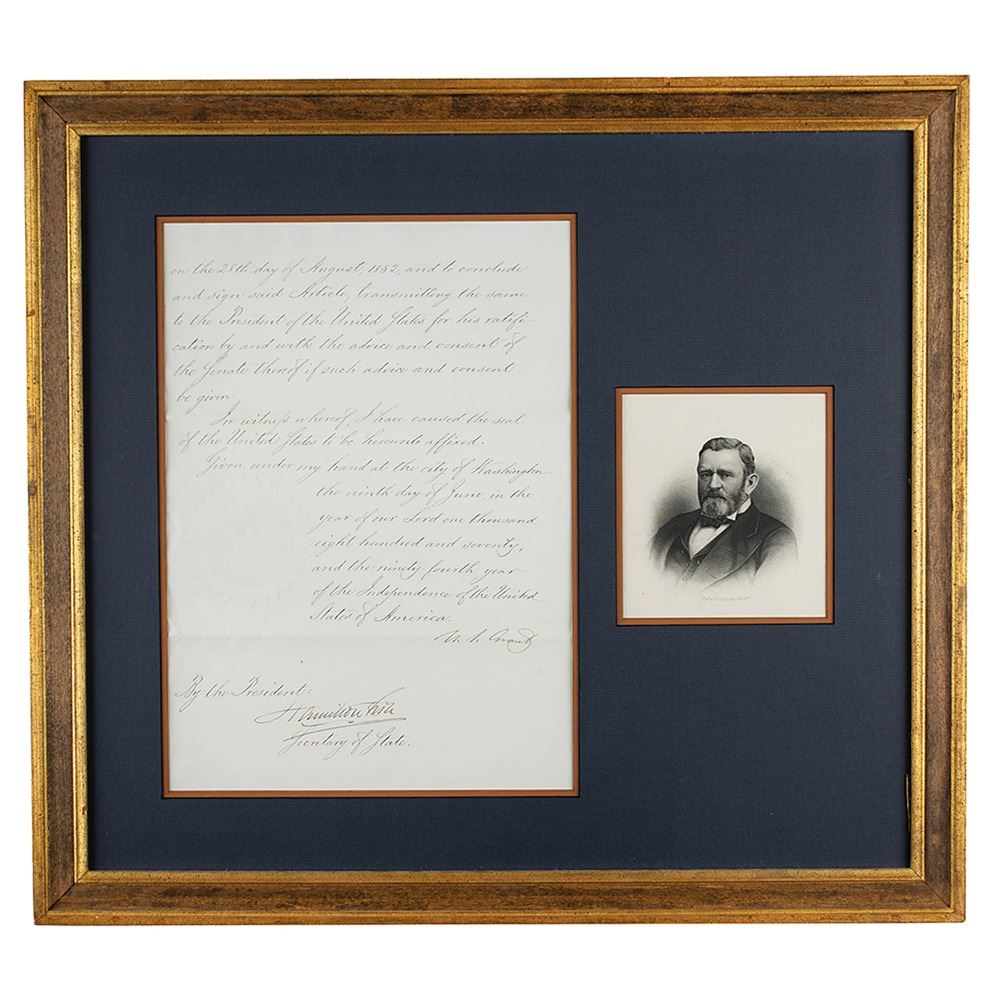 on the 28th day of August, 1852, and to conclude
and sign said Article, transmitting the same
to the President of the United States for his ratifi-
cation by and with the advice and consent of
the Senate thereof if such advice and consent
be given.
In witness whereof, I have caused the seal
of the United States to be hereunto affixed.
Given under my hand at the city of Washington
the ninth day of June, in the
year of our Lord one thousand
eight hundred and seventy,
and the ninety fourth year
of the Independence of the United
States of America.
U. S. Grant
By the President:
Hamilton Fish
Secretary of State.